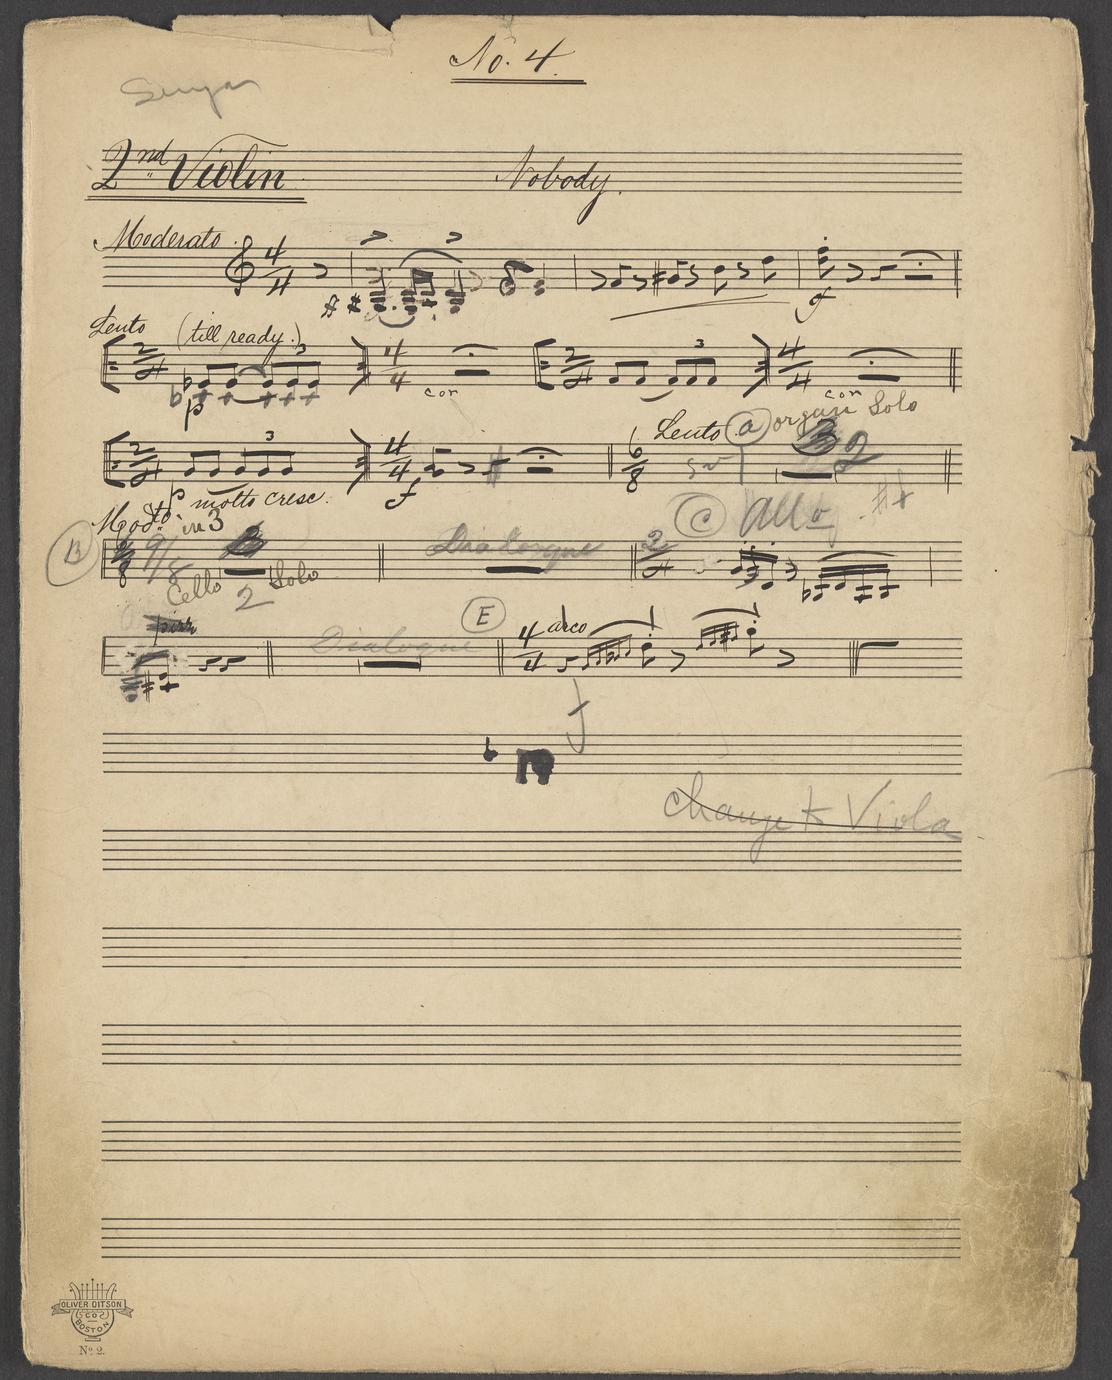 No. 4.
2nd Violin Nobody.
Moderato.
4 4
f
Lento (till ready.) 3 3
2 4 4 4 2 4 4 4
p con con
Lento a organ Solo
3
2 4 4 4 6 8 2
p molto cresc. f
Modto. in 3 C Allo
B 9/8 Dialogue 2 4
Cello 2 Solo
pizz E arco
Dialogue 4 4
f
Change to Viola
OLIVER DITSON
CO
BOSTON
No. 2.